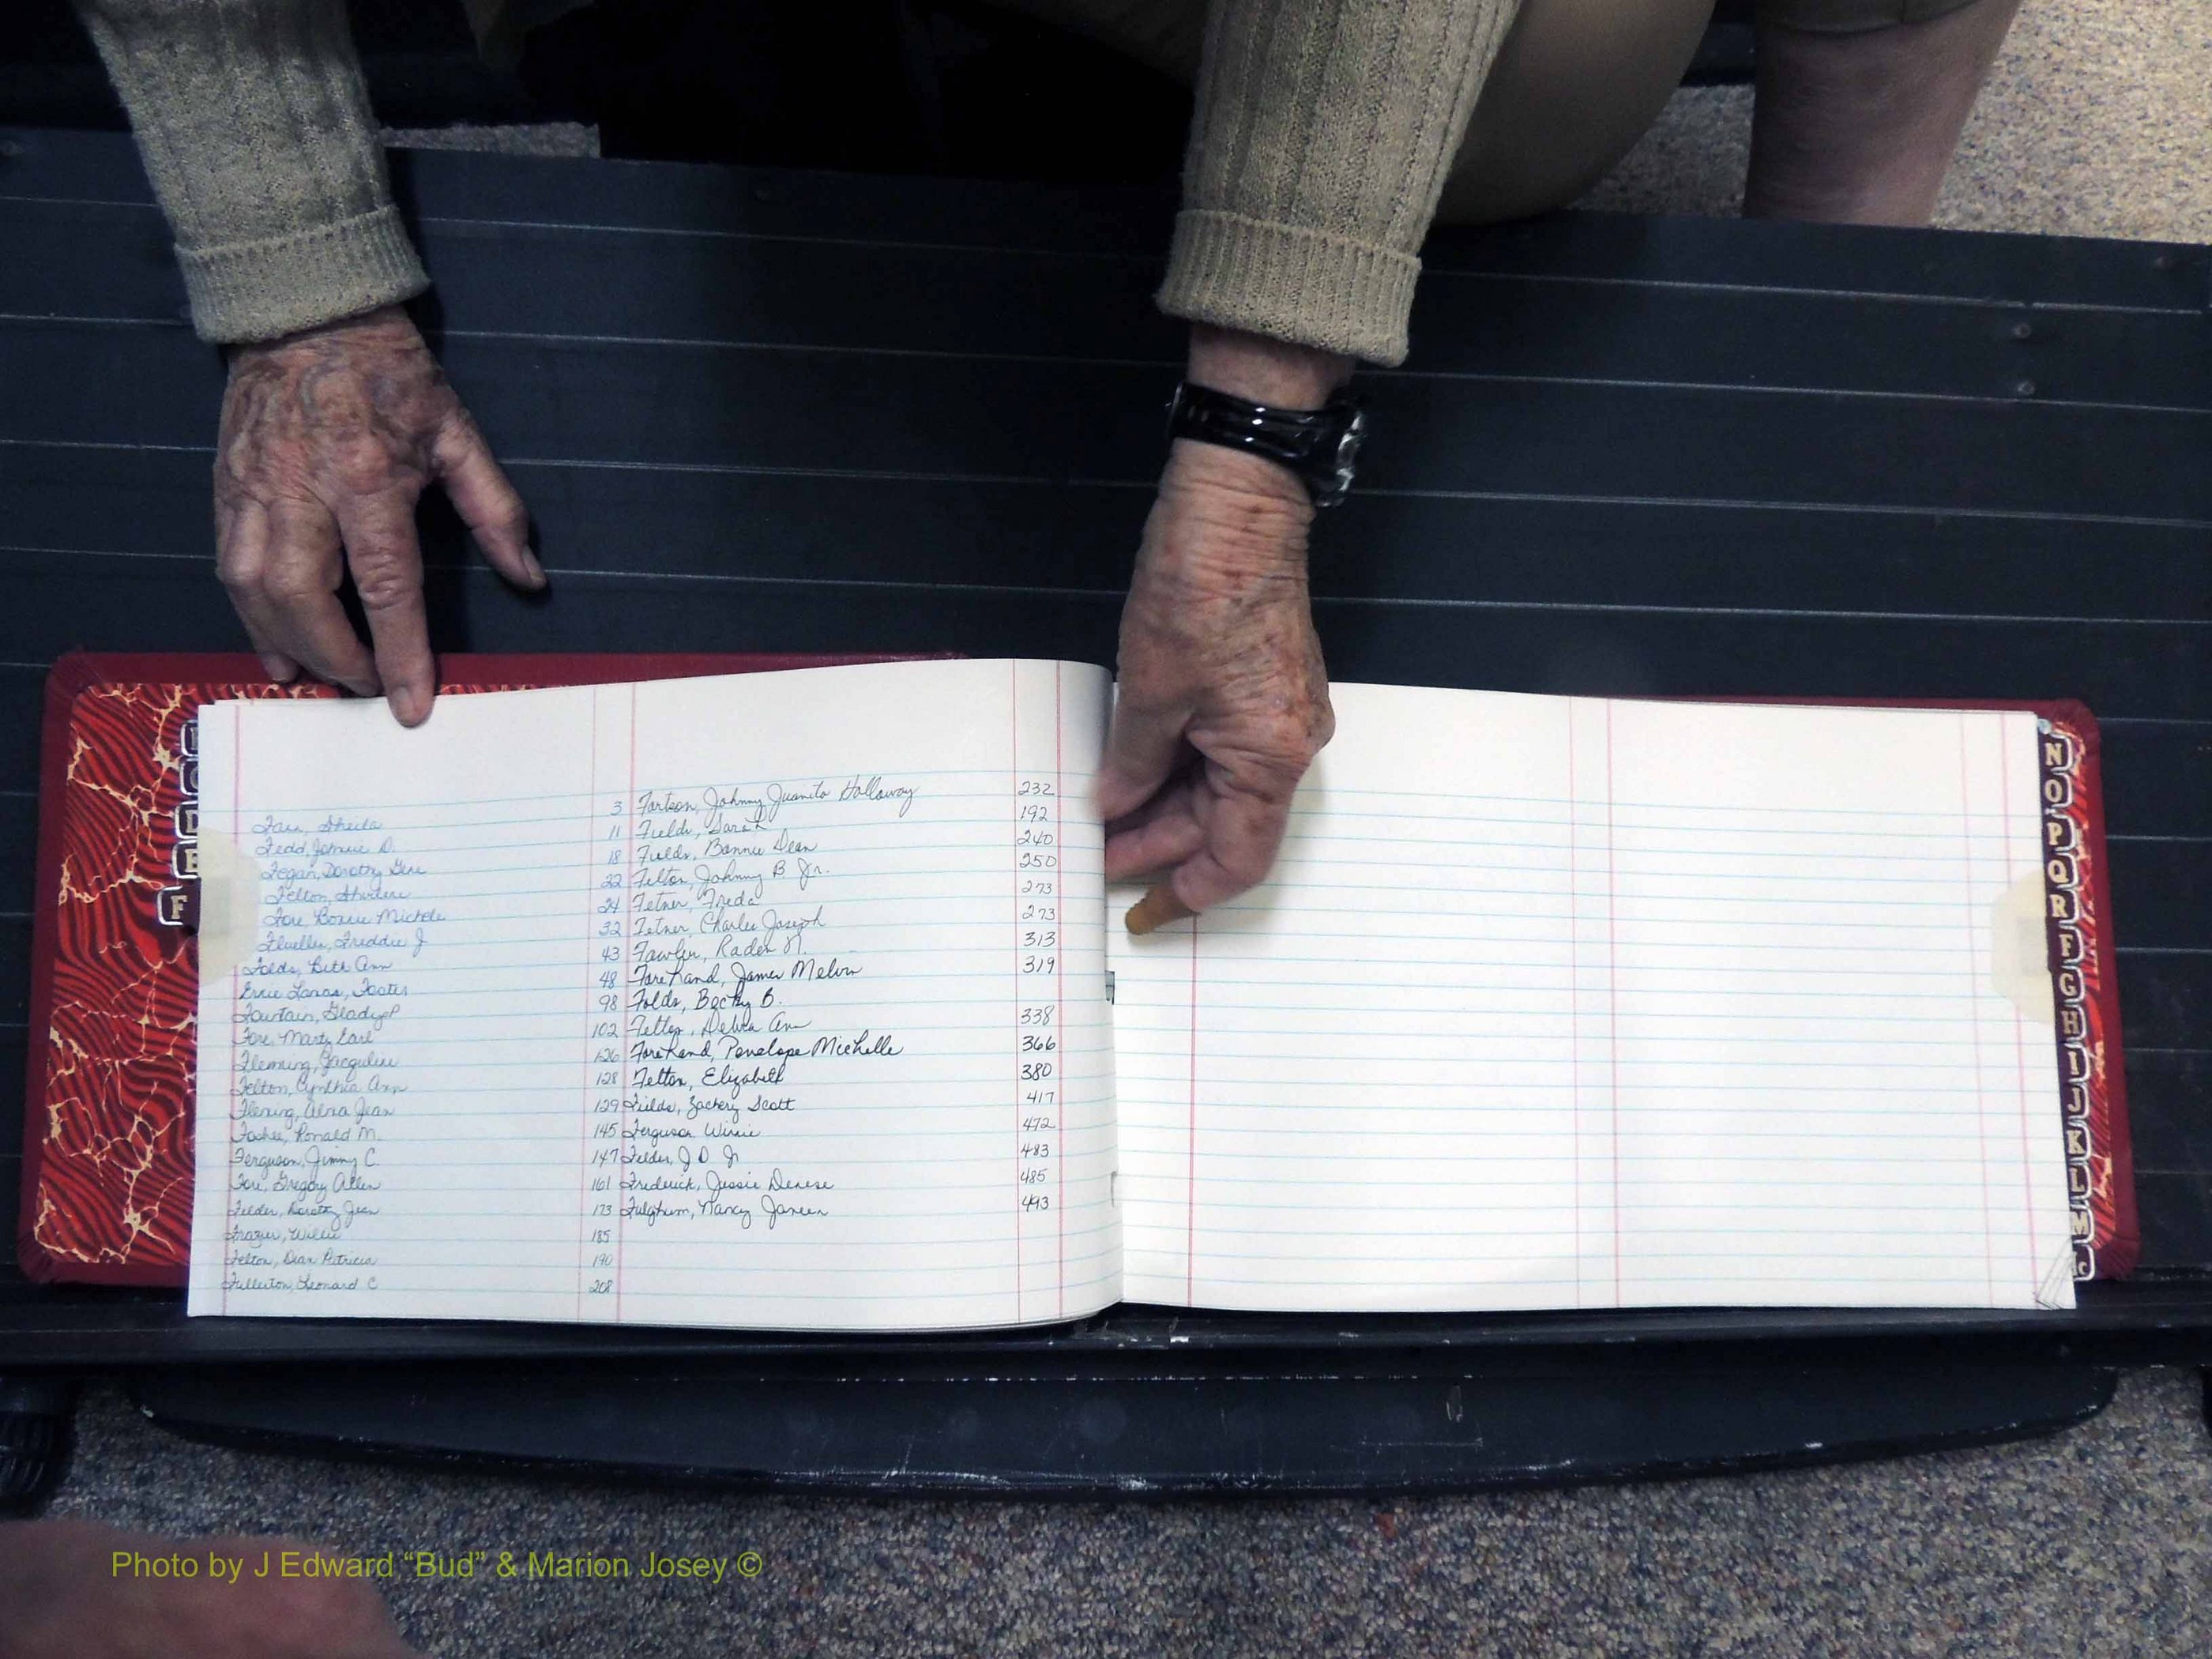 Farr, Sheila 3
Fedd, Johnnie D. 11
Fegan, Dorothy Gene 18
Felton, 22
Fore Bonnie Michele 24
Fluellen, Freddie J 32
Folds, Beth Ann 43
Ernie Lamar, Foster 48
Fountain, Gladys P 98
Fore, Marty Earl 102
Fleming, Jacquline 126
Felton, Cynthia Ann 128
Fleming, Alma Jean 129
Foshee, Ronald M. 145
Ferguson, Jimmy C. 147
Fore, Gregory Allen 161
Felder, Dorothy Jean 173
Frazier, Willie 185
Felton, Dian Patricia 190
Fullerton, Leonard C 208
Fortson, Johnny Juanita Holloway 232
Fields, Sarah 192
Fields, Bonnie Dean 240
Felton, Johnny B Jr. 250
Fetner, Freda 273
Fetner, Charles Joseph 273
Fowler, Raden N. 313
Forehand, James Melvin 319
Folds, Becky B.
Felton, Debra Ann 338
Forehand, Penelope Michelle 366
Felton, Elizabeth 380
Fields, Zackery Scott 417
Ferguson Winnie 472
Felder, J D Jr 483
Frederick, Jessie Denese 485
Fulghum, Nancy Janeen 493
D
E
F
N
O
P
Q
R
F
G
H
I
J
K
L
M
Mc
Photo by J Edward “Bud” & Marion Josey ©